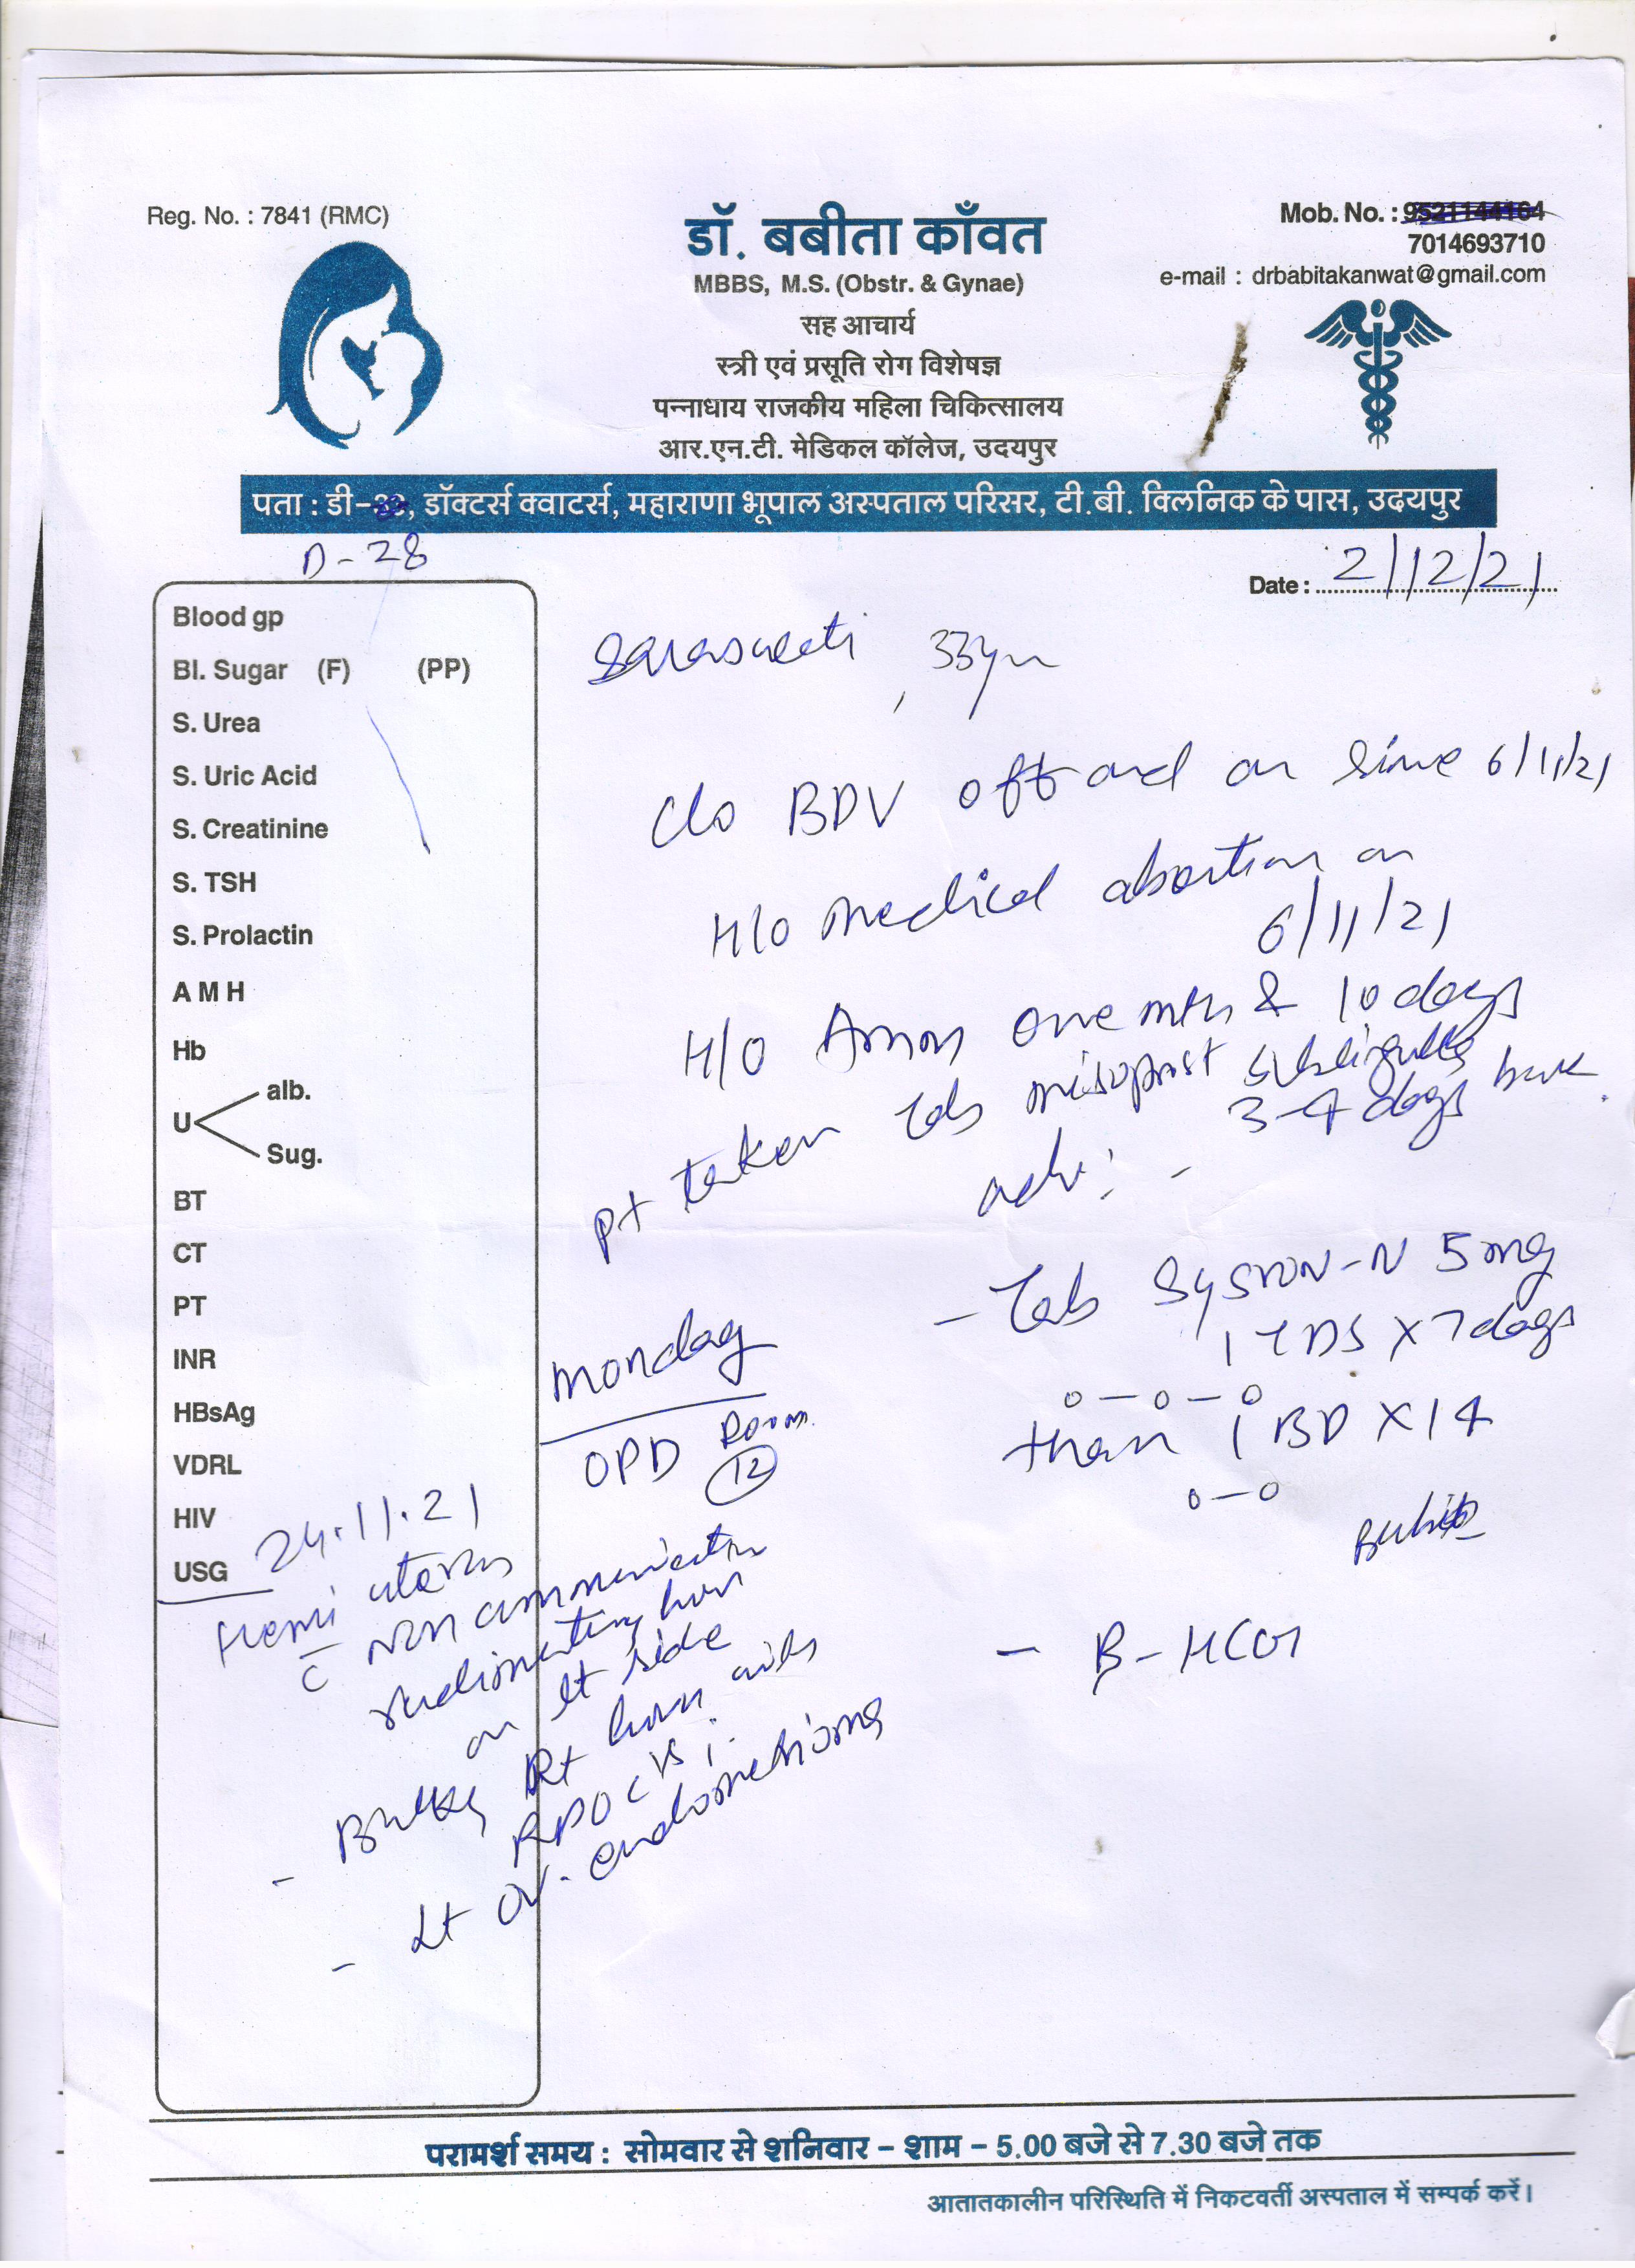 Reg. No. : 7841 (RMC)
डॉ. बबीता काँवत
MBBS, M.S. (Obstr. & Gynae)
सह आचार्य
स्त्री एवं प्रसूति रोग विशेषज्ञ
पन्नाधाय राजकीय महिला चिकित्सालय
आर.एन.टी. मेडिकल कॉलेज, उदयपुर
Mob. No. : 9521144164
7014693710
e-mail : drbabitakanwat@gmail.com
पता : डी-, डॉक्टर्स क्वाटर्स, महाराणा भूपाल अस्पताल परिसर, टी.बी. क्लिनिक के पास, उदयपुर
D-28
Date : 2/12/21
Blood gp
Bl. Sugar (F) (PP)
S. Urea
S. Uric Acid
S. Creatinine
S. TSH
S. Prolactin
A M H
Hb
U alb.
Sug.
BT
CT
PT
INR
HBsAg
VDRL
HIV
USG 24.11.21
Hemi uterus
c̄ non communicating
rudimentary horn
on lt side
- Bulky Rt horn with
RPOC
- Lt ov. endometrioma
Saraswati, 33yr
C/o BDV off and on since 6/11/21
H/o medical abortion on
6/11/21
H/O Amen one mth & 10 days
Pt taken Tab misoprost sublingually
3-4 days back
adv: -
- Tab Sysron-N 5mg
1 TDS x 7 days
0-0-0
then 1 BD x 14
0-0
- B-HCG
Monday
OPD Room
12
परामर्श समय : सोमवार से शनिवार - शाम - 5.00 बजे से 7.30 बजे तक
आतातकालीन परिस्थिति में निकटवर्ती अस्पताल में सम्पर्क करें।